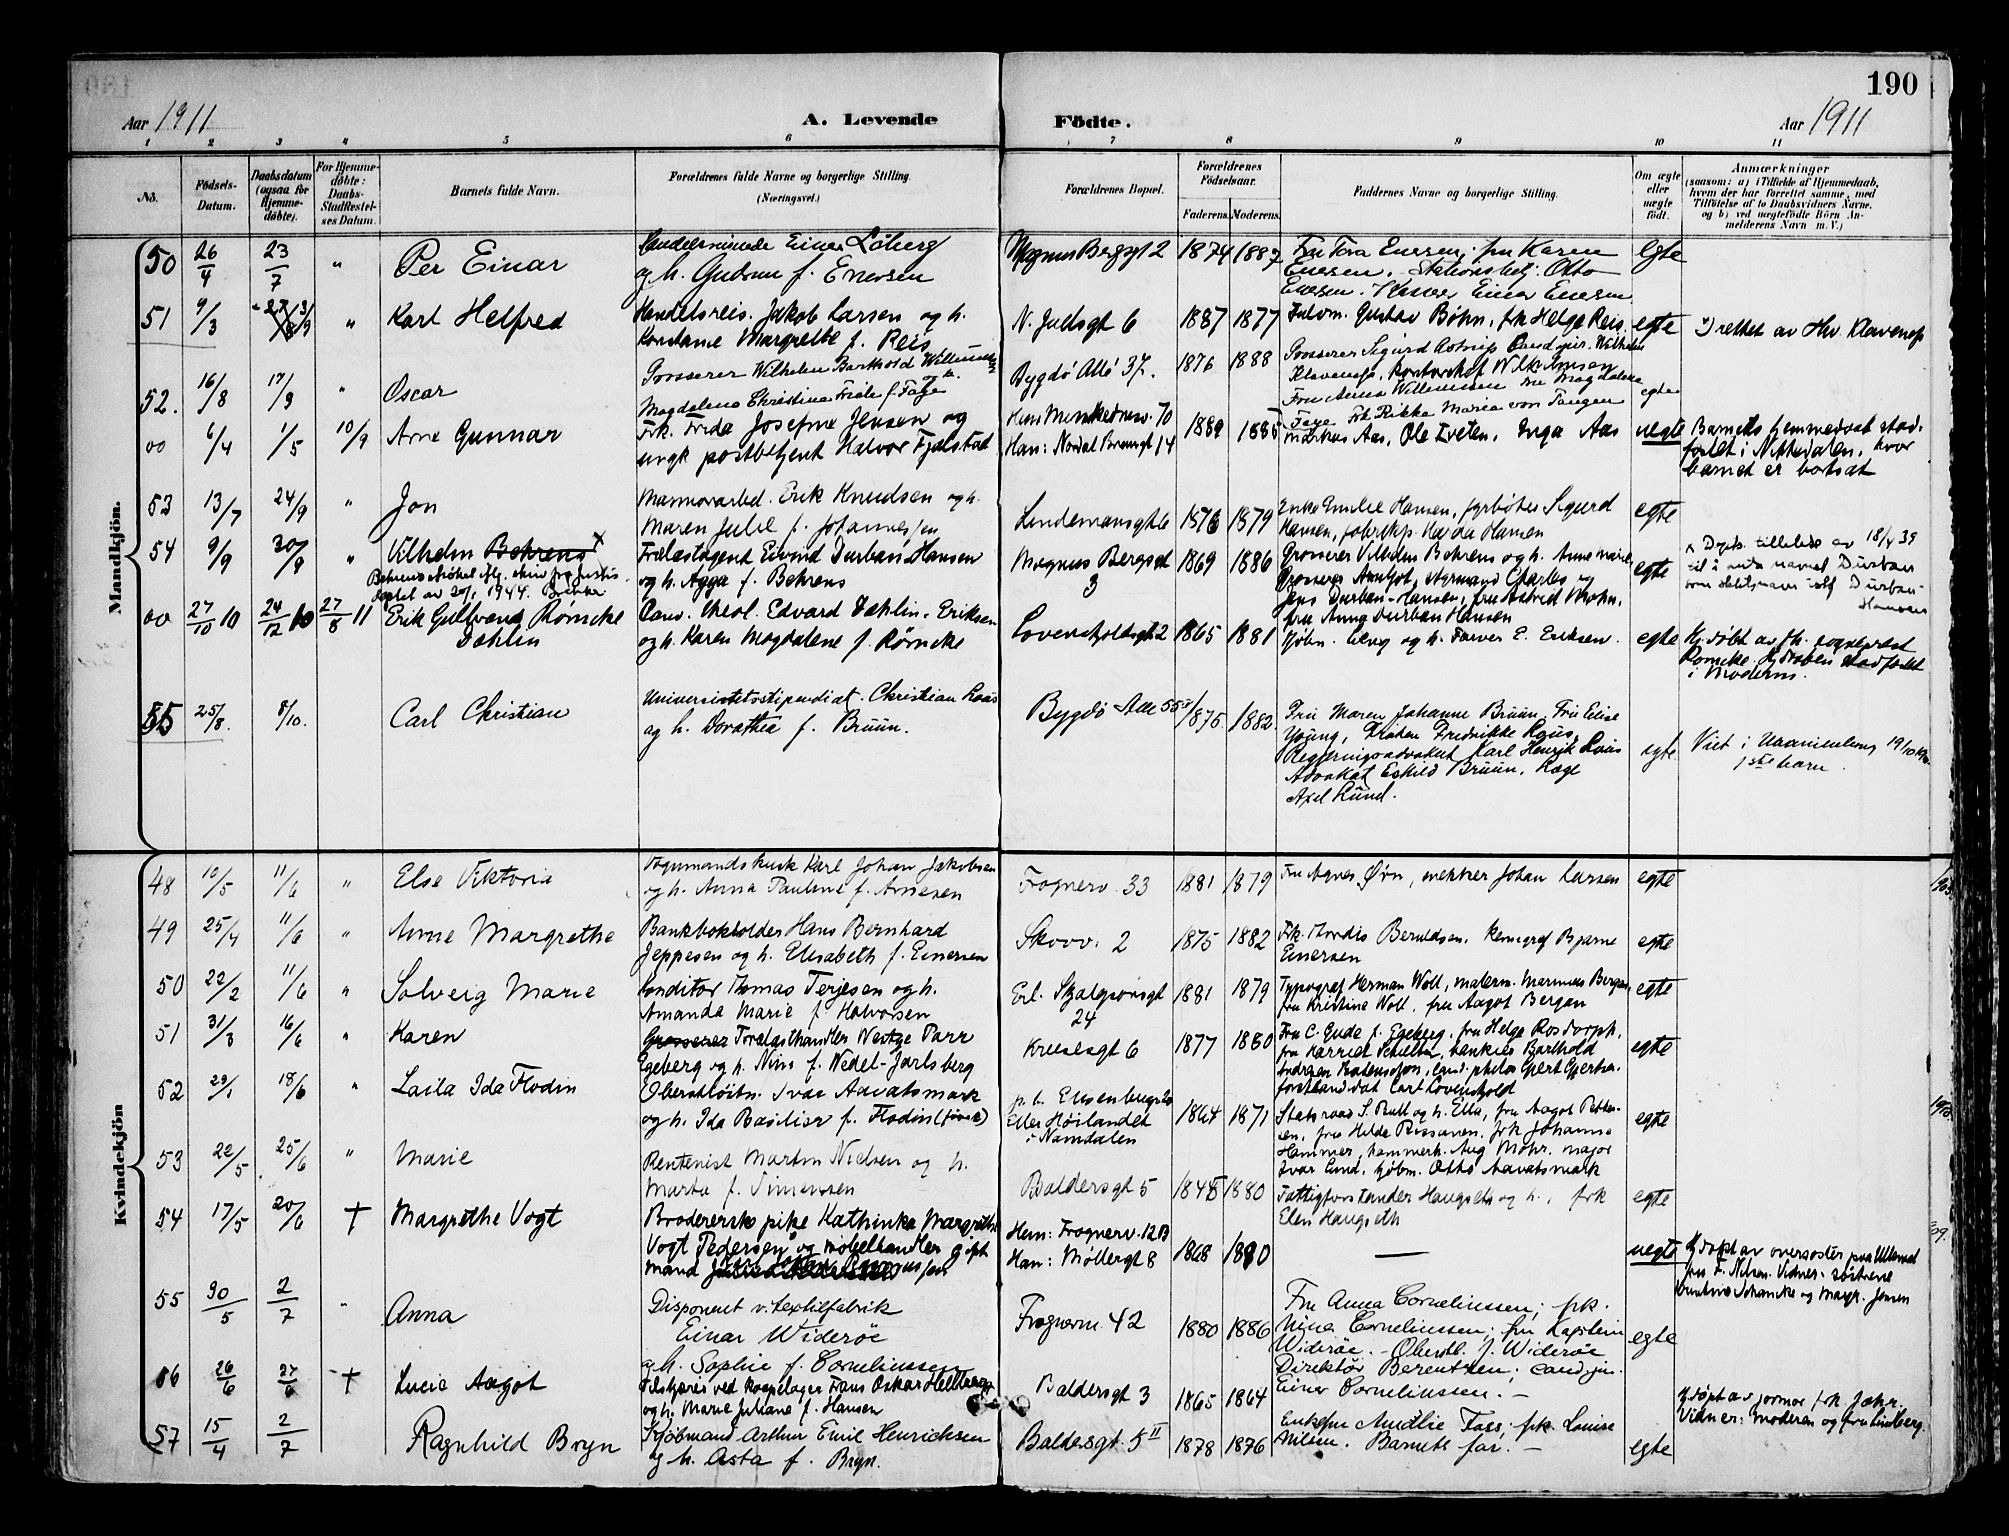 190
Aar 1911
A. Levende
Födte.
Aar 1911
1 2 3 4 5 6 7 8 9 10 11
No.
Fødsels-Datum.
Daabsdatum (ogsaa for Hjemmedøbte).
For Hjemmedøbte: Daabs-Stadfæstelses Datum.
Barnets fulde Navn.
Forældrenes fulde Navne og borgerlige Stilling (Næringsvei.)
Forældrenes Bopæl.
Forældrenes Fødselsaar.
Faderens. Moderens.
Faddernes Navne og borgerlige Stilling.
Om ægte eller uægte født.
Anmærkninger
(saasom: a) i Tilfælde af Hjemmedaab, hvem der har forrettet samme, med Tilføielse af to Daabsvidners Navne, og b) ved uægtefødte Börn Anmelderens Navn m. V.)
Mandkjön.
50 26/4 23/7 " Per Einar
og h. Gudrun f. Enersen
Magnus Bergsgt 2 1874 1887
Fru Tora Enersen, fru Karen
Enersen. Stationsbetj. Otto
Enersen. Einar Enersen
egte
51 9/3 " Karl Helfred
Handelsreis. Jakob Larsen og h.
Konstanse Margrethe f. Reis
N. Juelsgt 6 1887 1877
Gustav Bøhn, frk Helga Reis
egte
52. 16/8 17/9 " Oscar
Grosserer Wilhelm Barthold Willumsen og h.
Magdalena Christina Friele f. Faye
Bygdö Allé 37. 1876 1888
Grosserer Sigurd Astrup Cand. jur. Wilhelm
Fru Anna Willumsen
Faye Frk Rikka Maria von Tangen
egte
00 6/4 1/5 10/9 Arne Gunnar
Frk. Frida Josefine Jensen og
ungk postbetjent Halvor Fjelstad
Hun: Munkedamsv. 70
Han: Nordal Brunsgt 14
1889 1885
Markus Aas, Ole Tveten, Inga Aas
uegte
Barnets hjemmedaab stad-
fæstet i Nittedalen, hvor
barnet er bortsat
53 13/7 24/9 " Jon
Marmorarbeid. Erik Knudsen og h.
Maren Julie f. Johannessen
Lindemansgt 6 1876 1879
Enke Emilie Hansen, fyrbøter Sigurd
Hansen, Herda Hansen
egte
54 9/9 " Vilhelm Behrens x
Trælastagent Eivind Durban Hansen
og h. Agga f. Behrens
Magnus Bergsgt
3
1869 1886
Grosserer Vilhelm Behrens og h. Anne Marie,
Jens Durban-Hansen, fru Astrid Mohn,
fru Anna Durban Hansen
egte
x Dept. tillatelse av 18/4 39
til å anta navnet Durban
som slektsnavn istf Durban-
Hansen
00 27/10 10 24/12 10 27/8 11 Erik Gultvand Römcke
Dahlin
Cand. theol. Edvard Dahlin-Eriksen
og h. Karen Magdalene f. Römcke
Løvenskjoldsgt 2 1865 1881
egte
Hj. døbt av fh. sogneprest
Römcke. Hj. daaben stadfæstet
i Moderns.
55 25/8. 8/10. Carl Christian
Universitetsstipendiat. Christian Raus
og h. Dorothea f. Brüün.
1875. 1882
Fru Maren Johanne Brüün, Fru Elise
Young, Frøken Fredrikke Raus,
Regjeringsadvokat Karl Henrik Raus
Advokat Eskild Brüün, Læge
Axel Lünd.
egte
Viet i Uranienborg 19/10
1ste barn.
Kvindekjön
48 10/5 11/6 " Else Viktoria
Vognmandskusk Karl Johan Jakobsen
og h. Anna Pauline f. Arnesen
Frognerv. 33 1881 1879
Fru Agnes Øvn, snekker Johan Larsen
egte
49 25/4 11/6 " Anne Margrethe
Bankbokholder Hans Bernhard
Jeppesen og h. Elisabeth f. Einersen
Skovv. 2 1875 1882
Frk. Thordis Berntsen, Bjarne
Einersen
egte
50 22/2 11/6 " Solveig Marie
Konditor Thomas Terjesen og h.
Amanda Marie f. Halvorsen
Erl. Skjalgsonsgt
24
1881 1879
Typograf Herman Woll, malerm. Marinius Bergan,
fru Kristine Woll, fru Aagot Bergan
egte
51 31/3 16/6 " Karen
Grosserer Trælasthandler Westye Parr
Egeberg og h. Nini f. Wedel-Jarlsberg
Krusesgt 6 1877 1880
Fru C. Gude f. Egeberg, fru Helga Rosdorph,
forstkandidat Carl Løvenskiold
egte
52 29/1 18/6 " Laila Ida Flodin
Oberstløitn. Ivar Aavatsmark
og h. Ida Basilier f. Flodin
p.t. Elisenbergv.
Eller Høilandet
i Namdalen
1864 1871
Statsraad S. Bull og h. Ella, fru Aagot Petter-
sen, frk Johanne
Hammer, kammerh. Aug Mohr, major
Ivar Lund, kjøbm. Otto Aavatsmark
egte
53 22/5 25/6 " Marie
Rentenist Martin Nielsen og h.
Marta f. Simensen
Baldersgt 5 1845 1880
Fattigforstander Haugseth og h., frk
Elen Haugseth
egte
54 17/5 20/6 † Margrethe Vogt
Brodererske pike Kathinka Margrethe
Vogt Pedersen og møbelhandler gift
mand
Hun: Frognerv. 12 B
Han: Møllergt 8
1868 1880
—
uegte
Hj. døpt av oversøster paa Ullevaal
frk F. Nilsen. Vidner: søstrene
Schancke og Margr. Jensen
55 30/5 2/7 " Anna
Disponent v. textilfabrik
Einar Widerøe
og h. Sophie f. Corneliussen
Frognerv. 42 1880 1886
Fru Anna Corneliussen; frk.
Nina Corneliussen; fru Kaptein
Widerøe. - Oberstl. J. Widerøe
Direktør Berentzen; cand. jur.
Einar Corneliussen. -
egte
56 26/6 27/6 † Lucie Aagot
og h. Marie Juliane f. Hansen
Baldersgt 3 1865 1864
Hj. døpt av jormor frk Jahr.
Vidner: Moderen og fru Lindberg.
57 15/4 2/7 Ragnhild Bryn
Kjøbmand Arthur Emil Henrichsen
og h. Asta f. Bryn.
Baldersgt. 5 II 1878 1876
Enkefru Amalie Foss; frk. Louise
Nilsen. Barnets far. -
egte